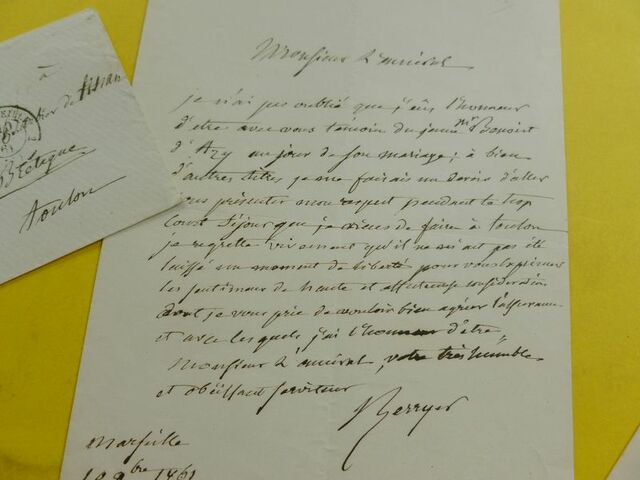 à
de tissan
toulon
Monsieur L'amiral
je n'ai pas oublié que j'eus l'honneur
d'etre avec vous témoin du jeune Mr Benoist
d'Azy au jour de son mariage; à bien
d'autres titres je me faisais un devoir d'aller
vous présenter mon respect pendant le trop
court séjour que je viens de faire à toulon
je regrette vivement qu'il ne m'ait pas été
laissé un moment de liberté pour vous exprimer
les sentimens de haute et affectueuse considération
dont je vous prie de vouloir bien agréer l'assurance
et avec lesquels j'ai l'honneur d'être
Monsieur L'amiral, votre très humble
et obéissant serviteur
Berryer
Marseille
bre 1861